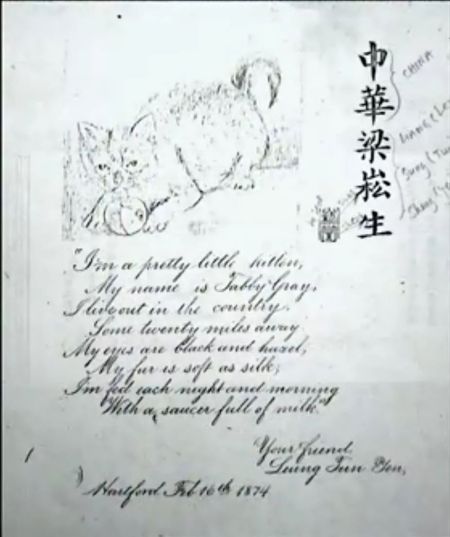 中華梁崧生
CHINA
"I'm a pretty little kitten,
My name is Tabby Gray,
I live out in the country.
Some twenty miles away
My eyes are black and hazel,
My fur is soft as silk,
I'm fed each night and morning
With a saucer full of milk."
Your friend
Leung Tun Yen,
Hartford Feb 16th 1874